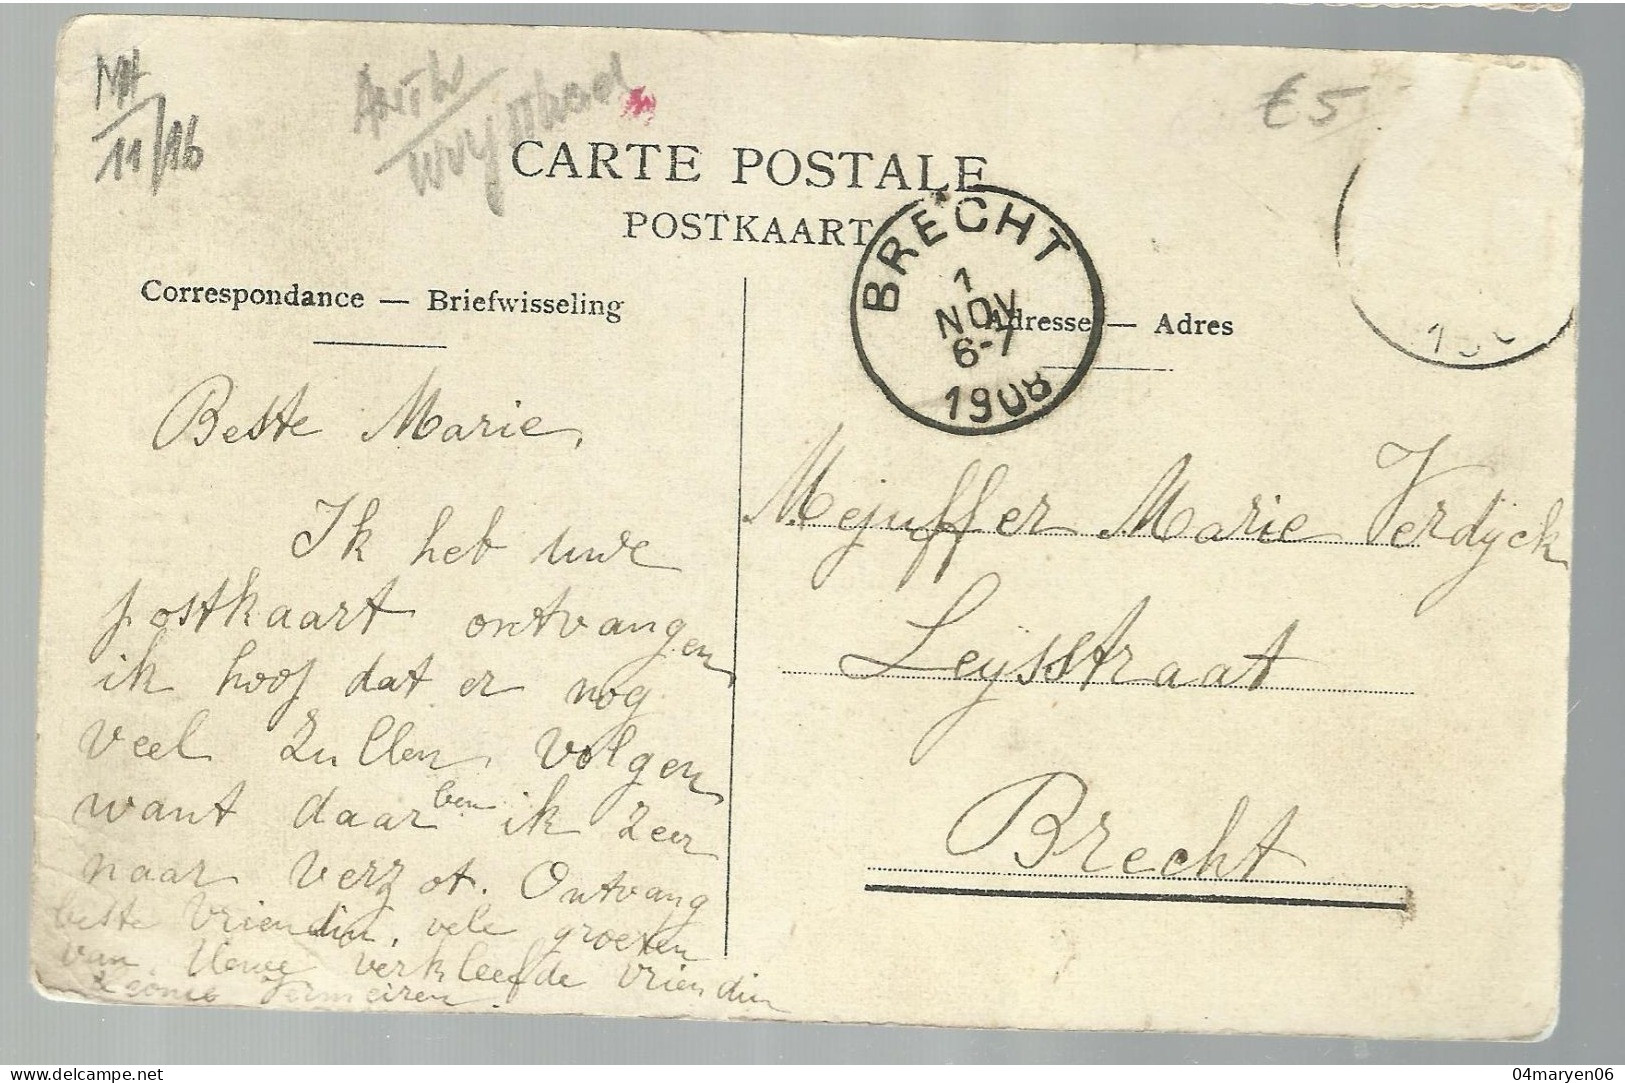 NH
11/16
Antw
€5
CARTE POSTALE
POSTKAART
BRECHT
1
NOV
6-7
1908
Correspondance — Briefwisseling
Adresse — Adres
Beste Marie,
Ik heb uwe
postkaart ontvangen
ik hoop dat er nog
veel zullen volgen
want daar ben ik zeer
naar verzot. Ontvang
beste vriendin, vele groeten
van Uewe verkleefde vriendin
Leonie Vermeiren.
Mejuffer Marie Verdyck
Leysstraat
Brecht
04maryen06